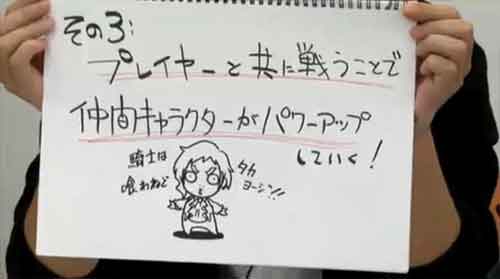 その3:
プレイヤーと共に戦うことで
仲間キャラクターがパワーアップ
していく!
騎士は
喰わねど
タカ
ヨージ!!